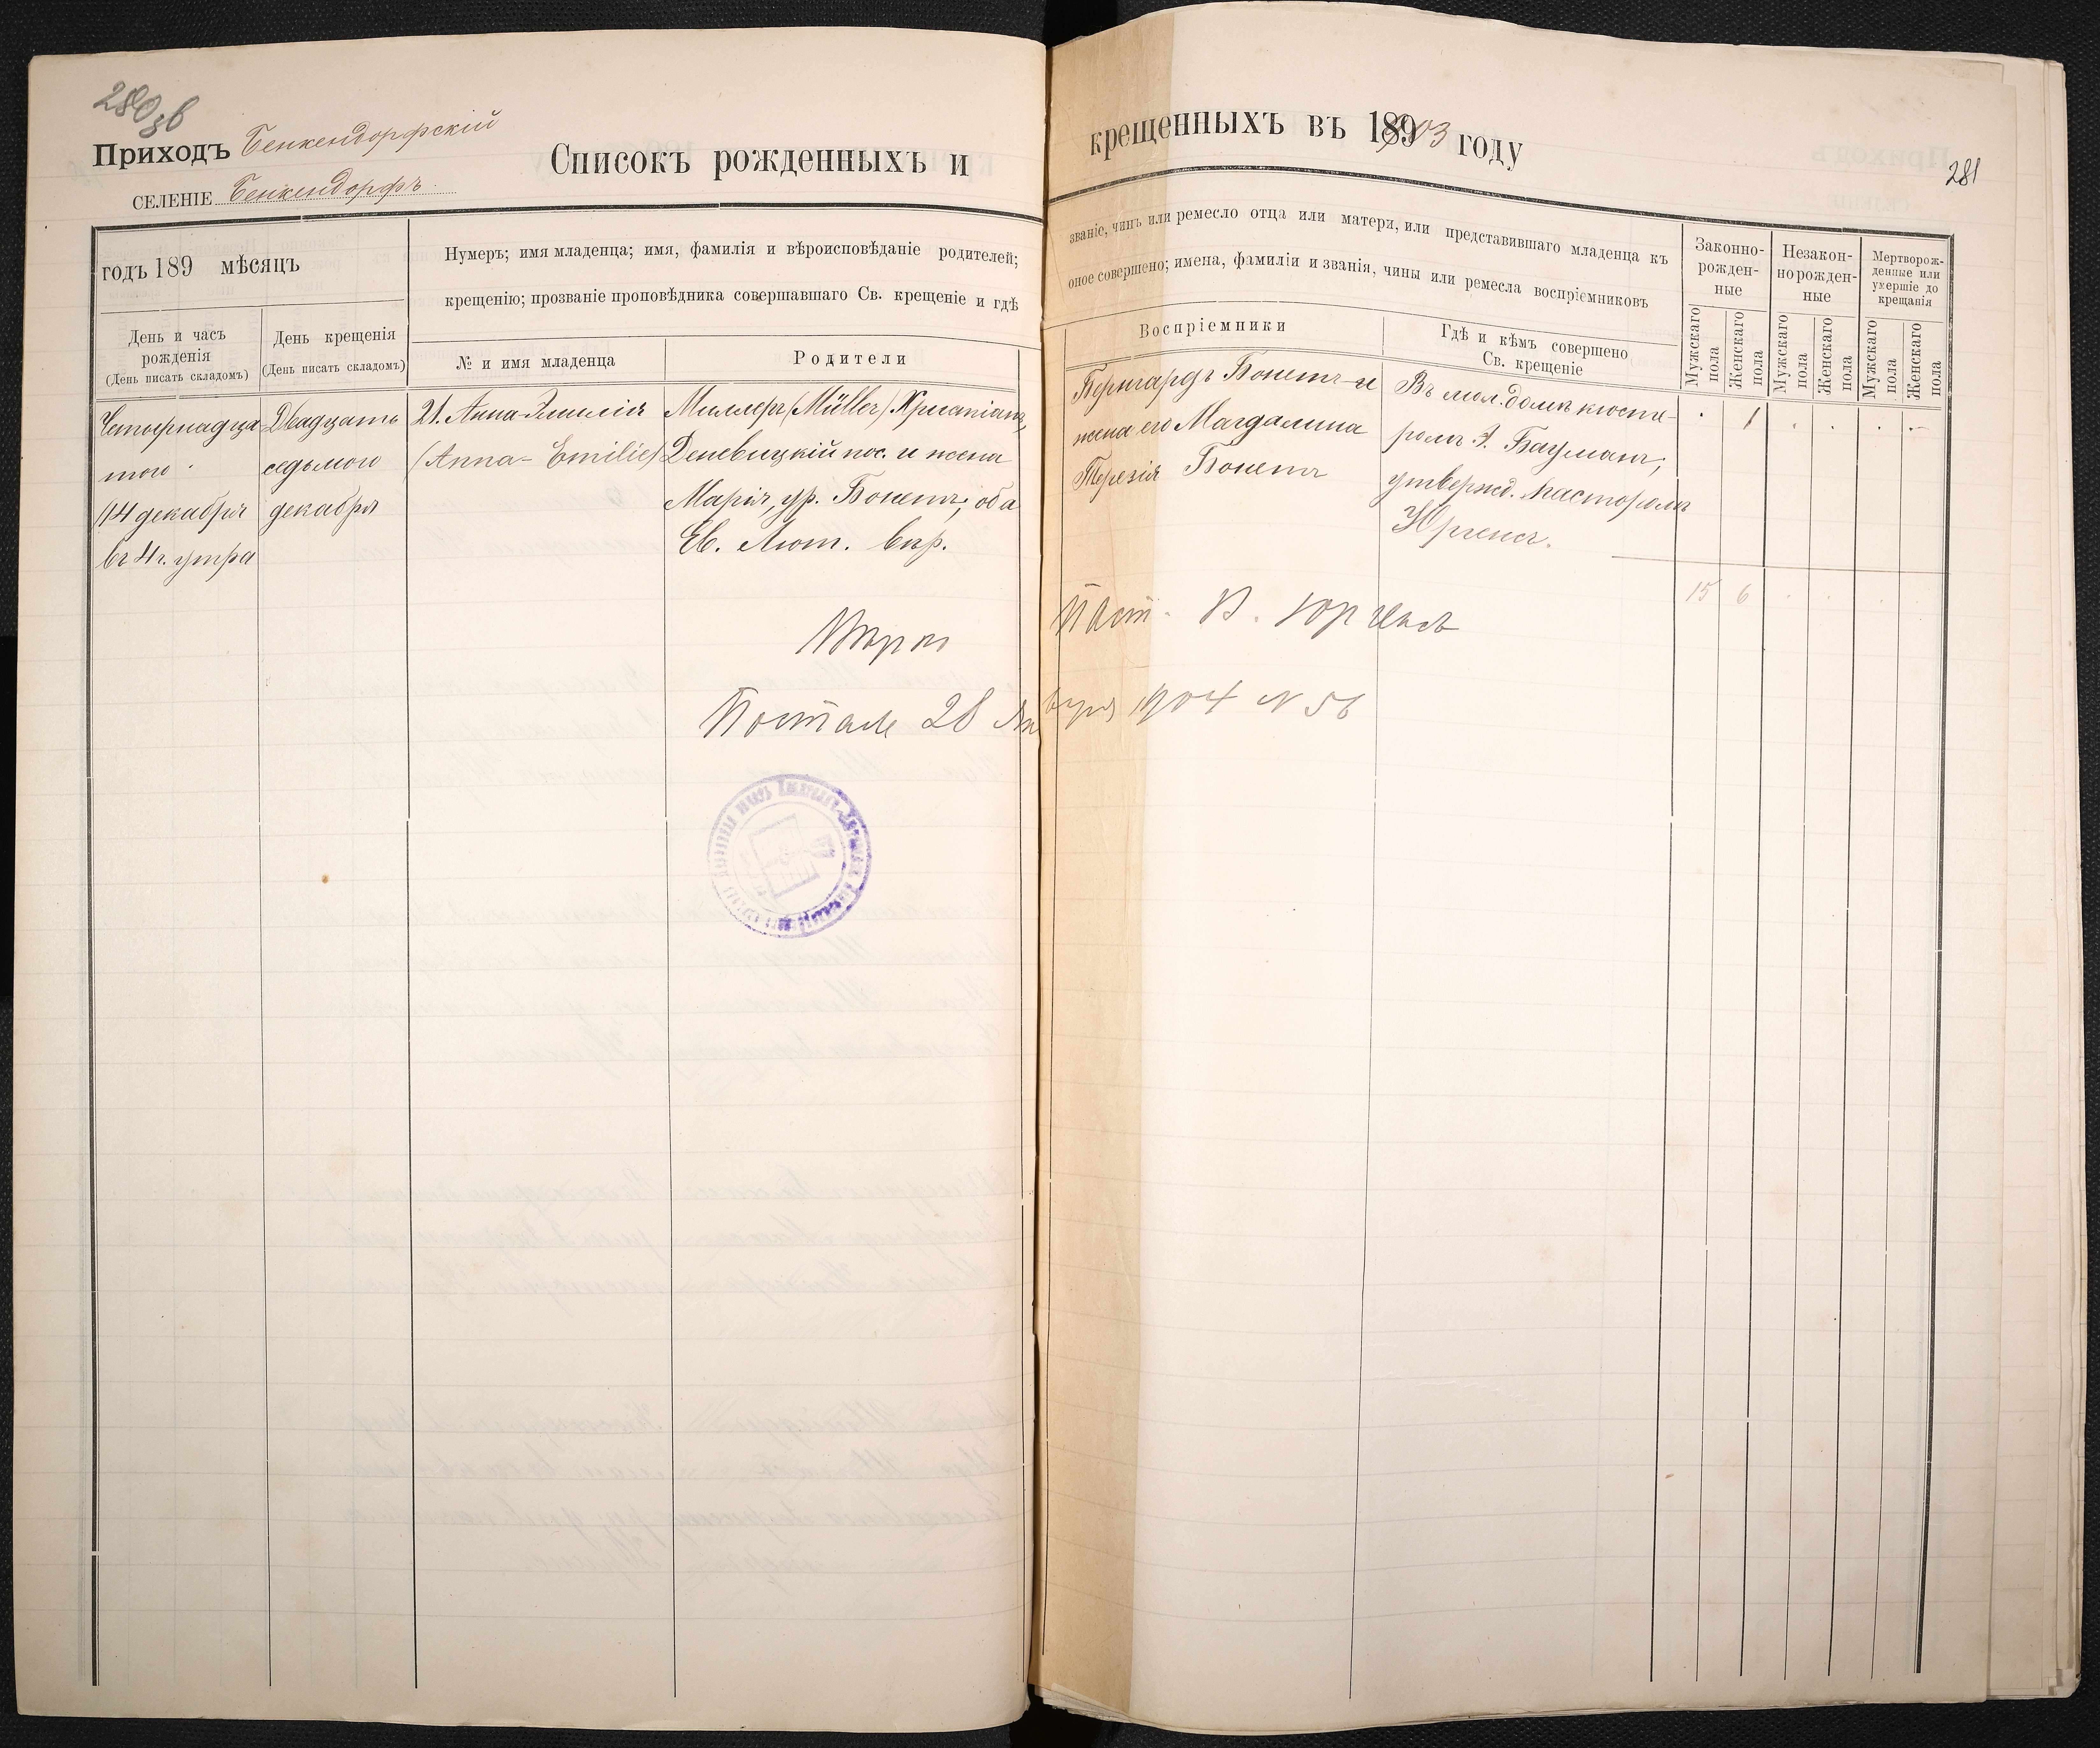 280 зв
Приходъ Бенкендорфскій
СЕЛЕНІЕ Бенкендорфъ
Списокъ рожденныхъ и
крещенныхъ въ 1903 году
281
годъ 189 мѣсяцъ
День и часъ
рожденія
(День писать складомъ)
День крещенія
(День писать складомъ)
Нумеръ; имя младенца; имя, фамилія и вѣроисповѣданіе родителей;
крещенію; прозваніе проповѣдника совершавшаго Св. крещеніе и гдѣ
№ и имя младенца
Родители
званіе, чинъ или ремесло отца или матери, или представившаго младенца къ
оное совершено; имена, фамиліи и званія, чины или ремесла воспріемниковъ
Воспріемники
Гдѣ и кѣмъ совершено
Св. крещеніе
Законно-
рожден-
ные
Незакон-
но рожден-
ные
Мертворож-
денные или
умершіе до
крещанія
Мужскаго
пола
Женскаго
пола
Мужскаго
пола
Женскаго
пола
Мужскаго
пола
Женскаго
пола
Четырнадца-
таго
/14 декабря
въ 4 ч. утра
Двадцать
седьмого
декабря
21. Анна-Эмилія
(Anna-Emilie)
Миллеръ (Müller) Христіанъ,
Деневицкій пос. и жена
Марія, ур. Бонетъ; оба
Ев. Лют. вѣр.
Бернгардъ Бонетъ и
жена его Магдалина
Терезія Бонетъ
Въ мол. домѣ кюсте-
ромъ Э. Бауманъ;
утвержд. пасторомъ
Юргенсъ.
1
15 6
Вѣрно Паст. В. Юргенсъ
Постале 28 Января 1904 N 56